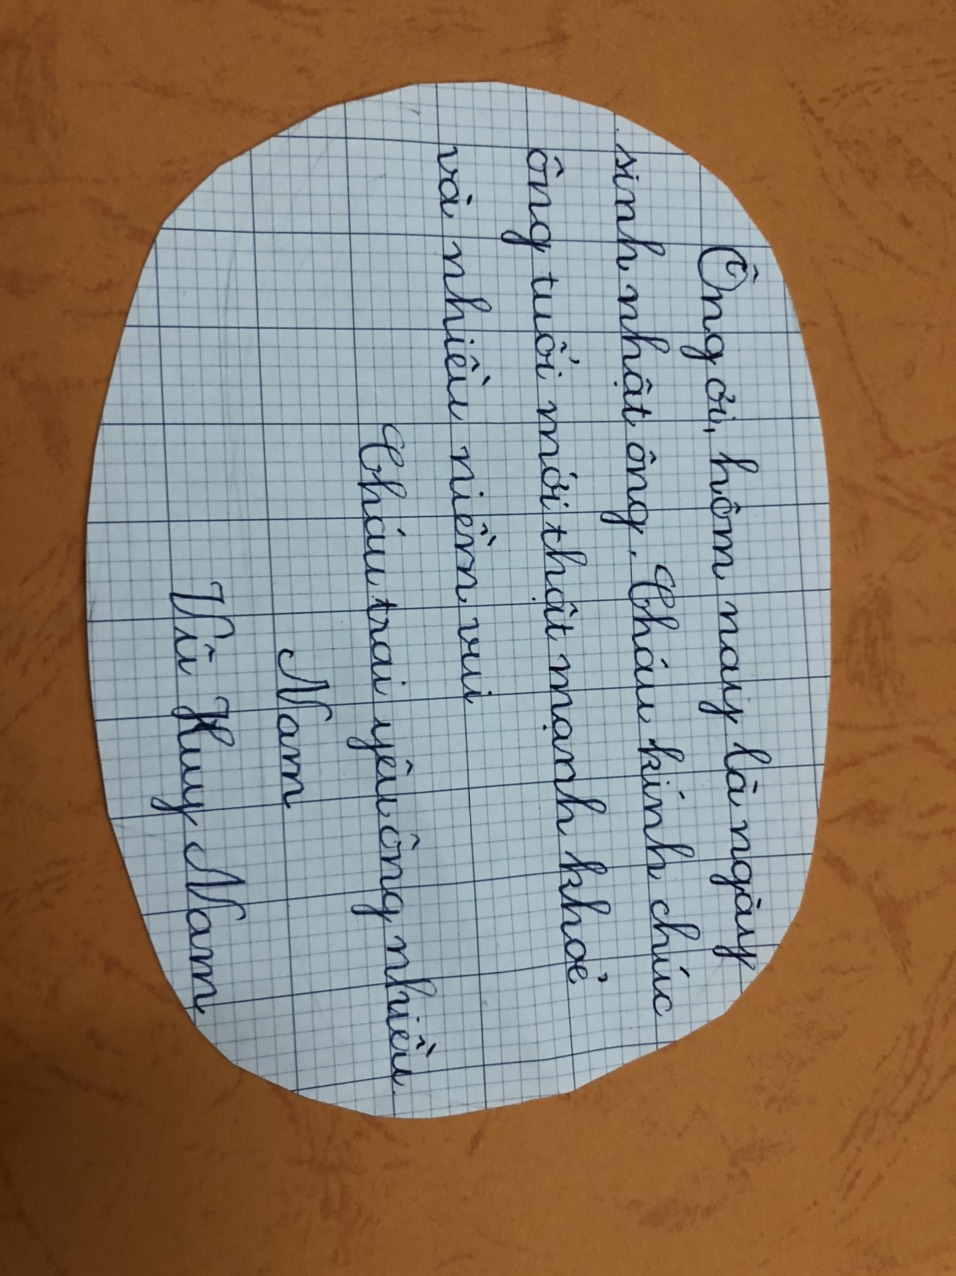 Ông ơi, hôm nay là ngày
sinh nhật ông. Cháu kính chúc
ông tuổi mới thật mạnh khoẻ
và nhiều niềm vui
Cháu trai yêu ông nhiều.
Nam
Vũ Huy Nam